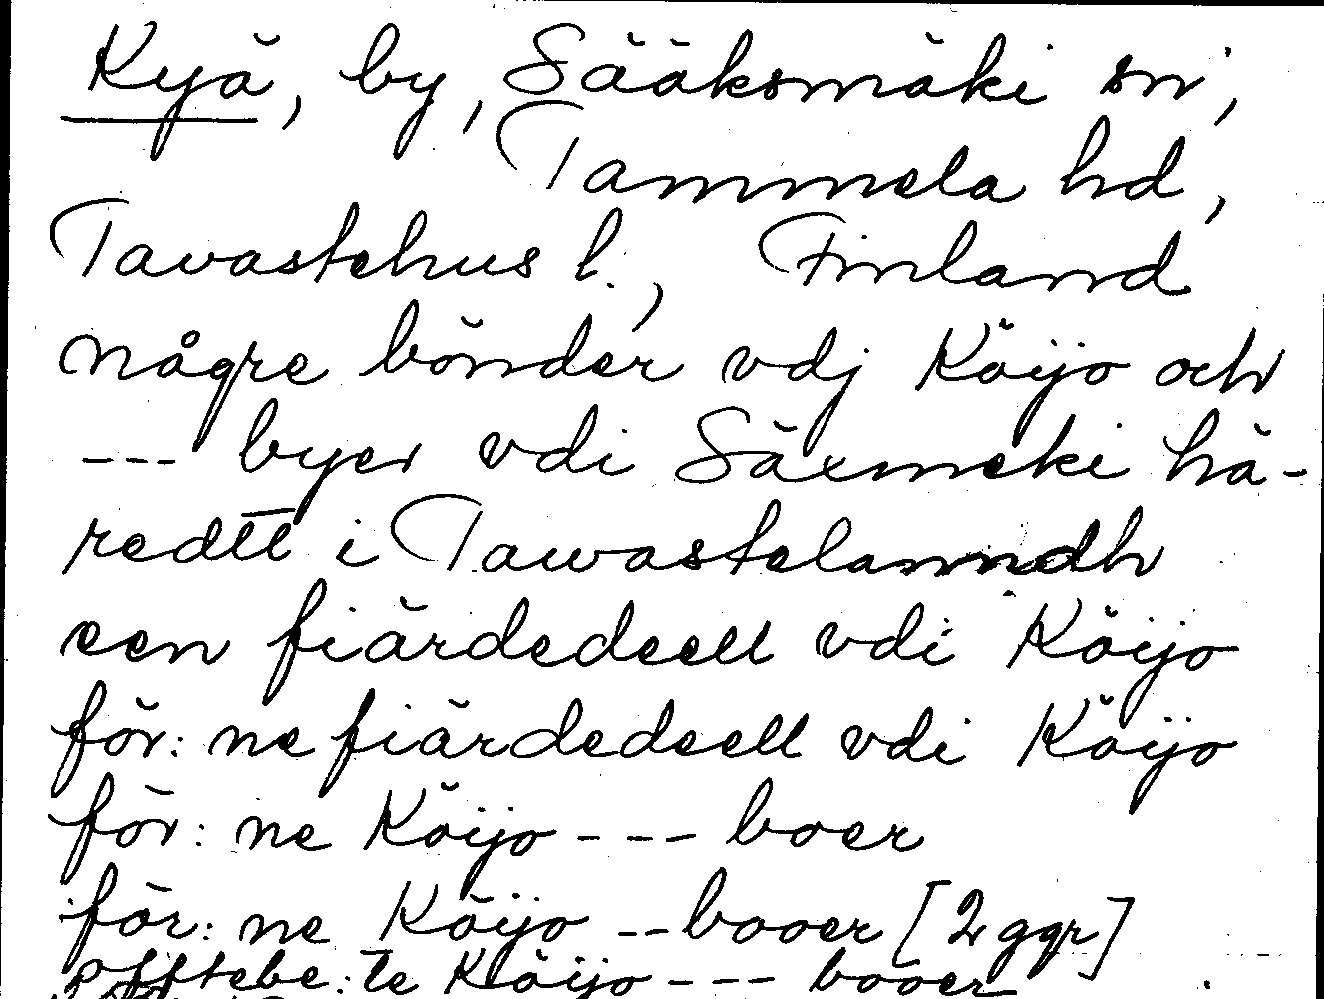 Kyä, by, Sääksmäki sn,
Tammela hd,
Tavastehus l., Finland
någre bönder vdj Köijo och
--- byer vdi Säxmeki hä-
redtt i Tawastelanndh
een fiärdedeell vdi Köijo
för: ne fiärdedeell vdi Köijo
för: ne Köijo --- boer
för: ne Köijo -- booer [2 ggr]
offtebe: te Köijo --- booer